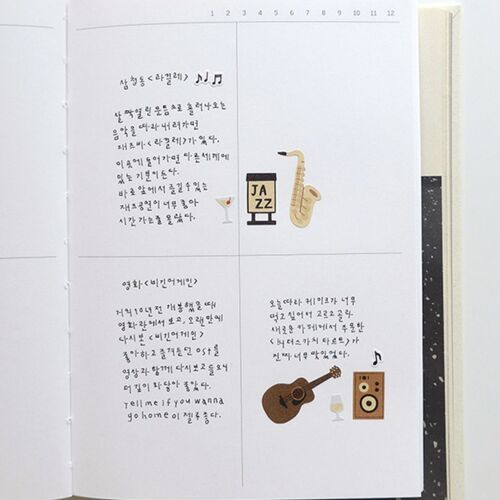 1 2 3 4 5 6 7 8 9 10 11 12
삼청동 <라 끌레>
살짝 열린 문틈으로 흘러나오는
음악을 따라 내려가면
재즈바 <라끌레>가 있다.
이곳에 들어가면 다른 세계에
있는 기분이 든다.
바로 앞에서 즐길 수 있는
재즈공연이 너무 좋아
시간 가는 줄 몰랐다.
JA
ZZ
영화 <비긴어게인>
거의 10년 전 개봉했을 때
영화관에서 보고, 오랜만에
다시 본 <비긴어게인>
좋아하고 즐겨듣던 ost를
영상과 함께 다시 보고 들으니
더 깊이 와닿아 좋았다.
Tell me if you wanna
go home이 젤루 좋다.
오늘따라 케이크가 너무
먹고 싶어서 고르고 골라
새로운 카페에서 주문한
<버터스카치 타르트>가
진짜 너무 맛있었다.